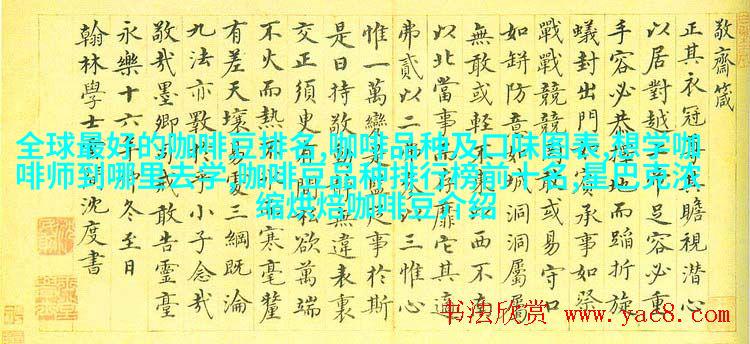 全球最好的咖啡豆排名,咖啡品种及口味图表,想学咖
啡师到哪里去学,咖啡豆品种排行榜前十名,星巴克浓
缩烘焙咖啡豆介绍
敬齋箴
正其衣冠其瞻視潛心
以居對越足容必重
手容必恭擇地而蹈折旋
蟻封出門承事如祭
戰戰兢兢敢或易守口
如缾防意如城洞洞屬屬
無敢或輕不東西不南
以北當事而存靡它其適
弗貳以二參以三惟心
惟一萬變是事於斯
是日持敬動無違表裏
交正須臾有私欲萬端
不火而熱不寒毫釐
有差天壤易處三綱既淪
九法亦斁乎小子念哉
敬哉墨卿司戒敢告靈臺
永樂十六年仲冬至日
翰林學士雲間沈度書
书法欣赏 www.yac8.com